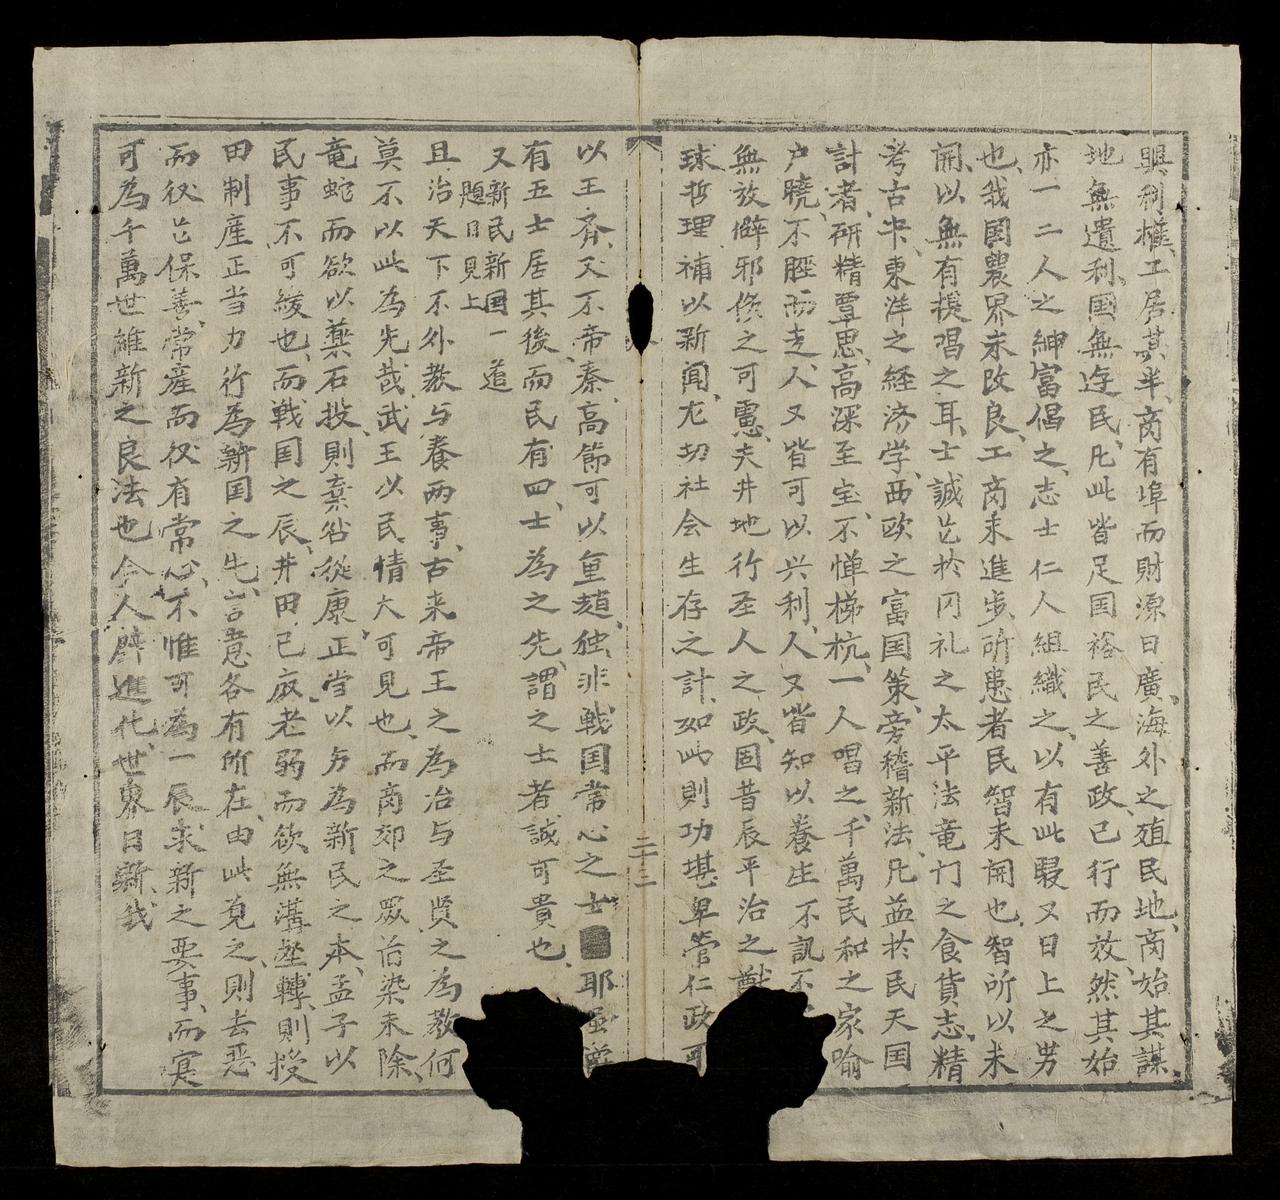 興利權、工居其半、商有埠而財源日廣、海外之殖民地、商始其謀
地無遺利、国無逰民、凡此皆足国裕民之善政、已行而效、然其始
亦一二人之紳富倡之、志士仁人組織之、以有此、又日上之劳
也、我国農界未改良、工商未進步、所患者民智未開也、智所以未
開、以無有提唱之耳、士誠於冈礼之太平法、竜门之食貨志、精
考古来東洋之経済学、西欧之富国策、旁稽新法、凡益於民天国
計者、研精覃思、高深至宝、不惮梯杭、一人唱之、千萬民和之、家喻
户曉、不脛而走、人又皆可以兴利、人又皆知以養生、不訊不
無放僻邪侈之可慮、夫井地行圣人之政、固昔辰平治之猷
球哲理補以新闻、尤切社会生存之計、如此則功堪卑管、仁政可
二十三
以王齐、又不帝秦、高節可以重趙、独非戦国常心之士耶
有五士居其後、而民有四、士為之先、謂之士者、誠可貴也、
又新民新国一道
題目見上
且治天下不外教与養两事、古来帝王之為治与圣贤之為教、何
莫不以此為先哉、武王以民情大可見也、而商郊之眾治染未除、
竜蛇而欲以藥石投、則棄咎從康、正当以为新民之本、孟子以
民事不可緩也、而戦国之辰、井田已废、老弱而欲無溝壑轉、則授
田制産、正当力行為新国之先、言意各有所在、由此觅之、則去恶
而後保善、常産而後有常心、不惟可為一辰求新之要事、而寔
可為千萬世維新之良法也、今人辟進化、世界日新、我